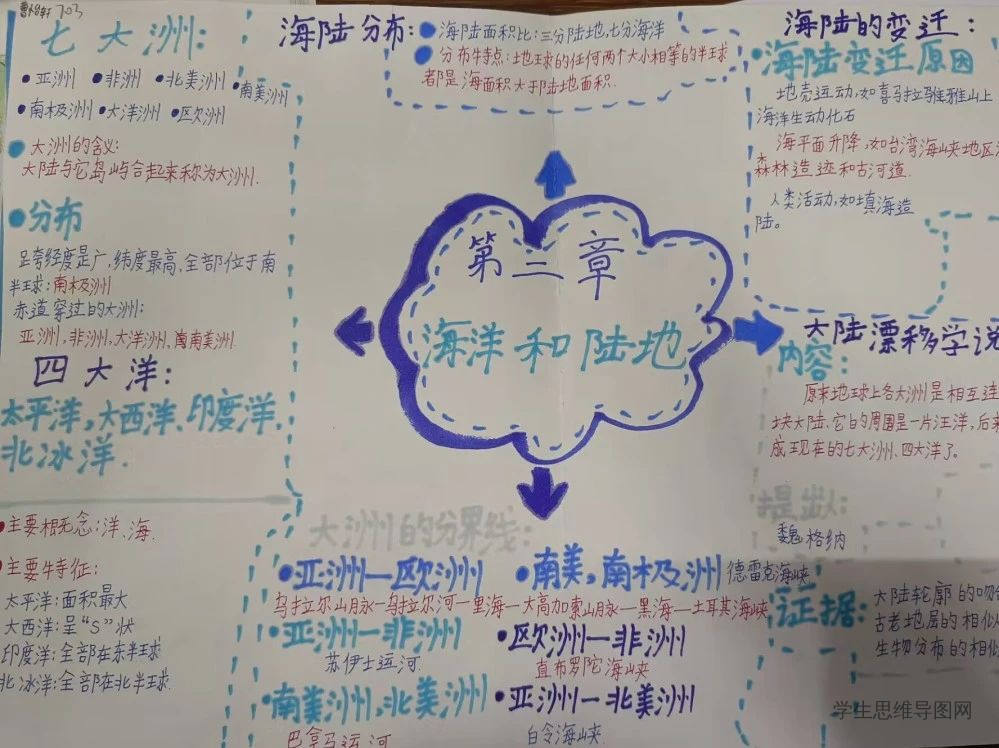 703
七大洲:
●亚洲 ●非洲 ●北美洲 ●南美洲
●南极洲 ●大洋洲 ●欧洲
●大洲的含义:
大陆与它岛屿合起来称为大洲.
●分布
跨经度最广,纬度最高,全部位于南
半球:南极洲
赤道穿过的大洲:
亚洲,非洲,大洋洲,南美洲
四大洋:
太平洋,大西洋,印度洋,
北冰洋.
●主要概念:洋、海
●主要特征:
太平洋:面积最大
大西洋:呈“S”状
印度洋:全部在东半球
北冰洋:全部在北半球.
海陆分布:
●海陆面积比:三分陆地,七分海洋
●分布特点:地球的任何两个大小相等的半球
都是海面积大于陆地面积.
第三章
海洋和陆地
大洲的分界线:
●亚洲—欧洲
乌拉尔山脉—乌拉尔河—里海—大高加索山脉—黑海—土耳其海峡
●南美,南极洲 德雷克海峡
●亚洲—非洲
苏伊士运河
●欧洲—非洲
直布罗陀海峡
●南美洲,北美洲
巴拿马运河
●亚洲—北美洲
白令海峡
海陆的变迁:
●海陆变迁原因
地壳运动,如喜马拉雅山上
海洋生动化石
海平面升降,如台湾海峡地区
森林遗迹和古河道.
人类活动,如填海造
陆。
大陆漂移学说
内容:
原来地球上各大洲是相互连
块大陆、它的周围是一片汪洋,后来
成现在的七大洲、四大洋了。
提出:
魏格纳
证据:
大陆轮廓的吻
古老地层的相似
生物分布的相似
学生思维导图网